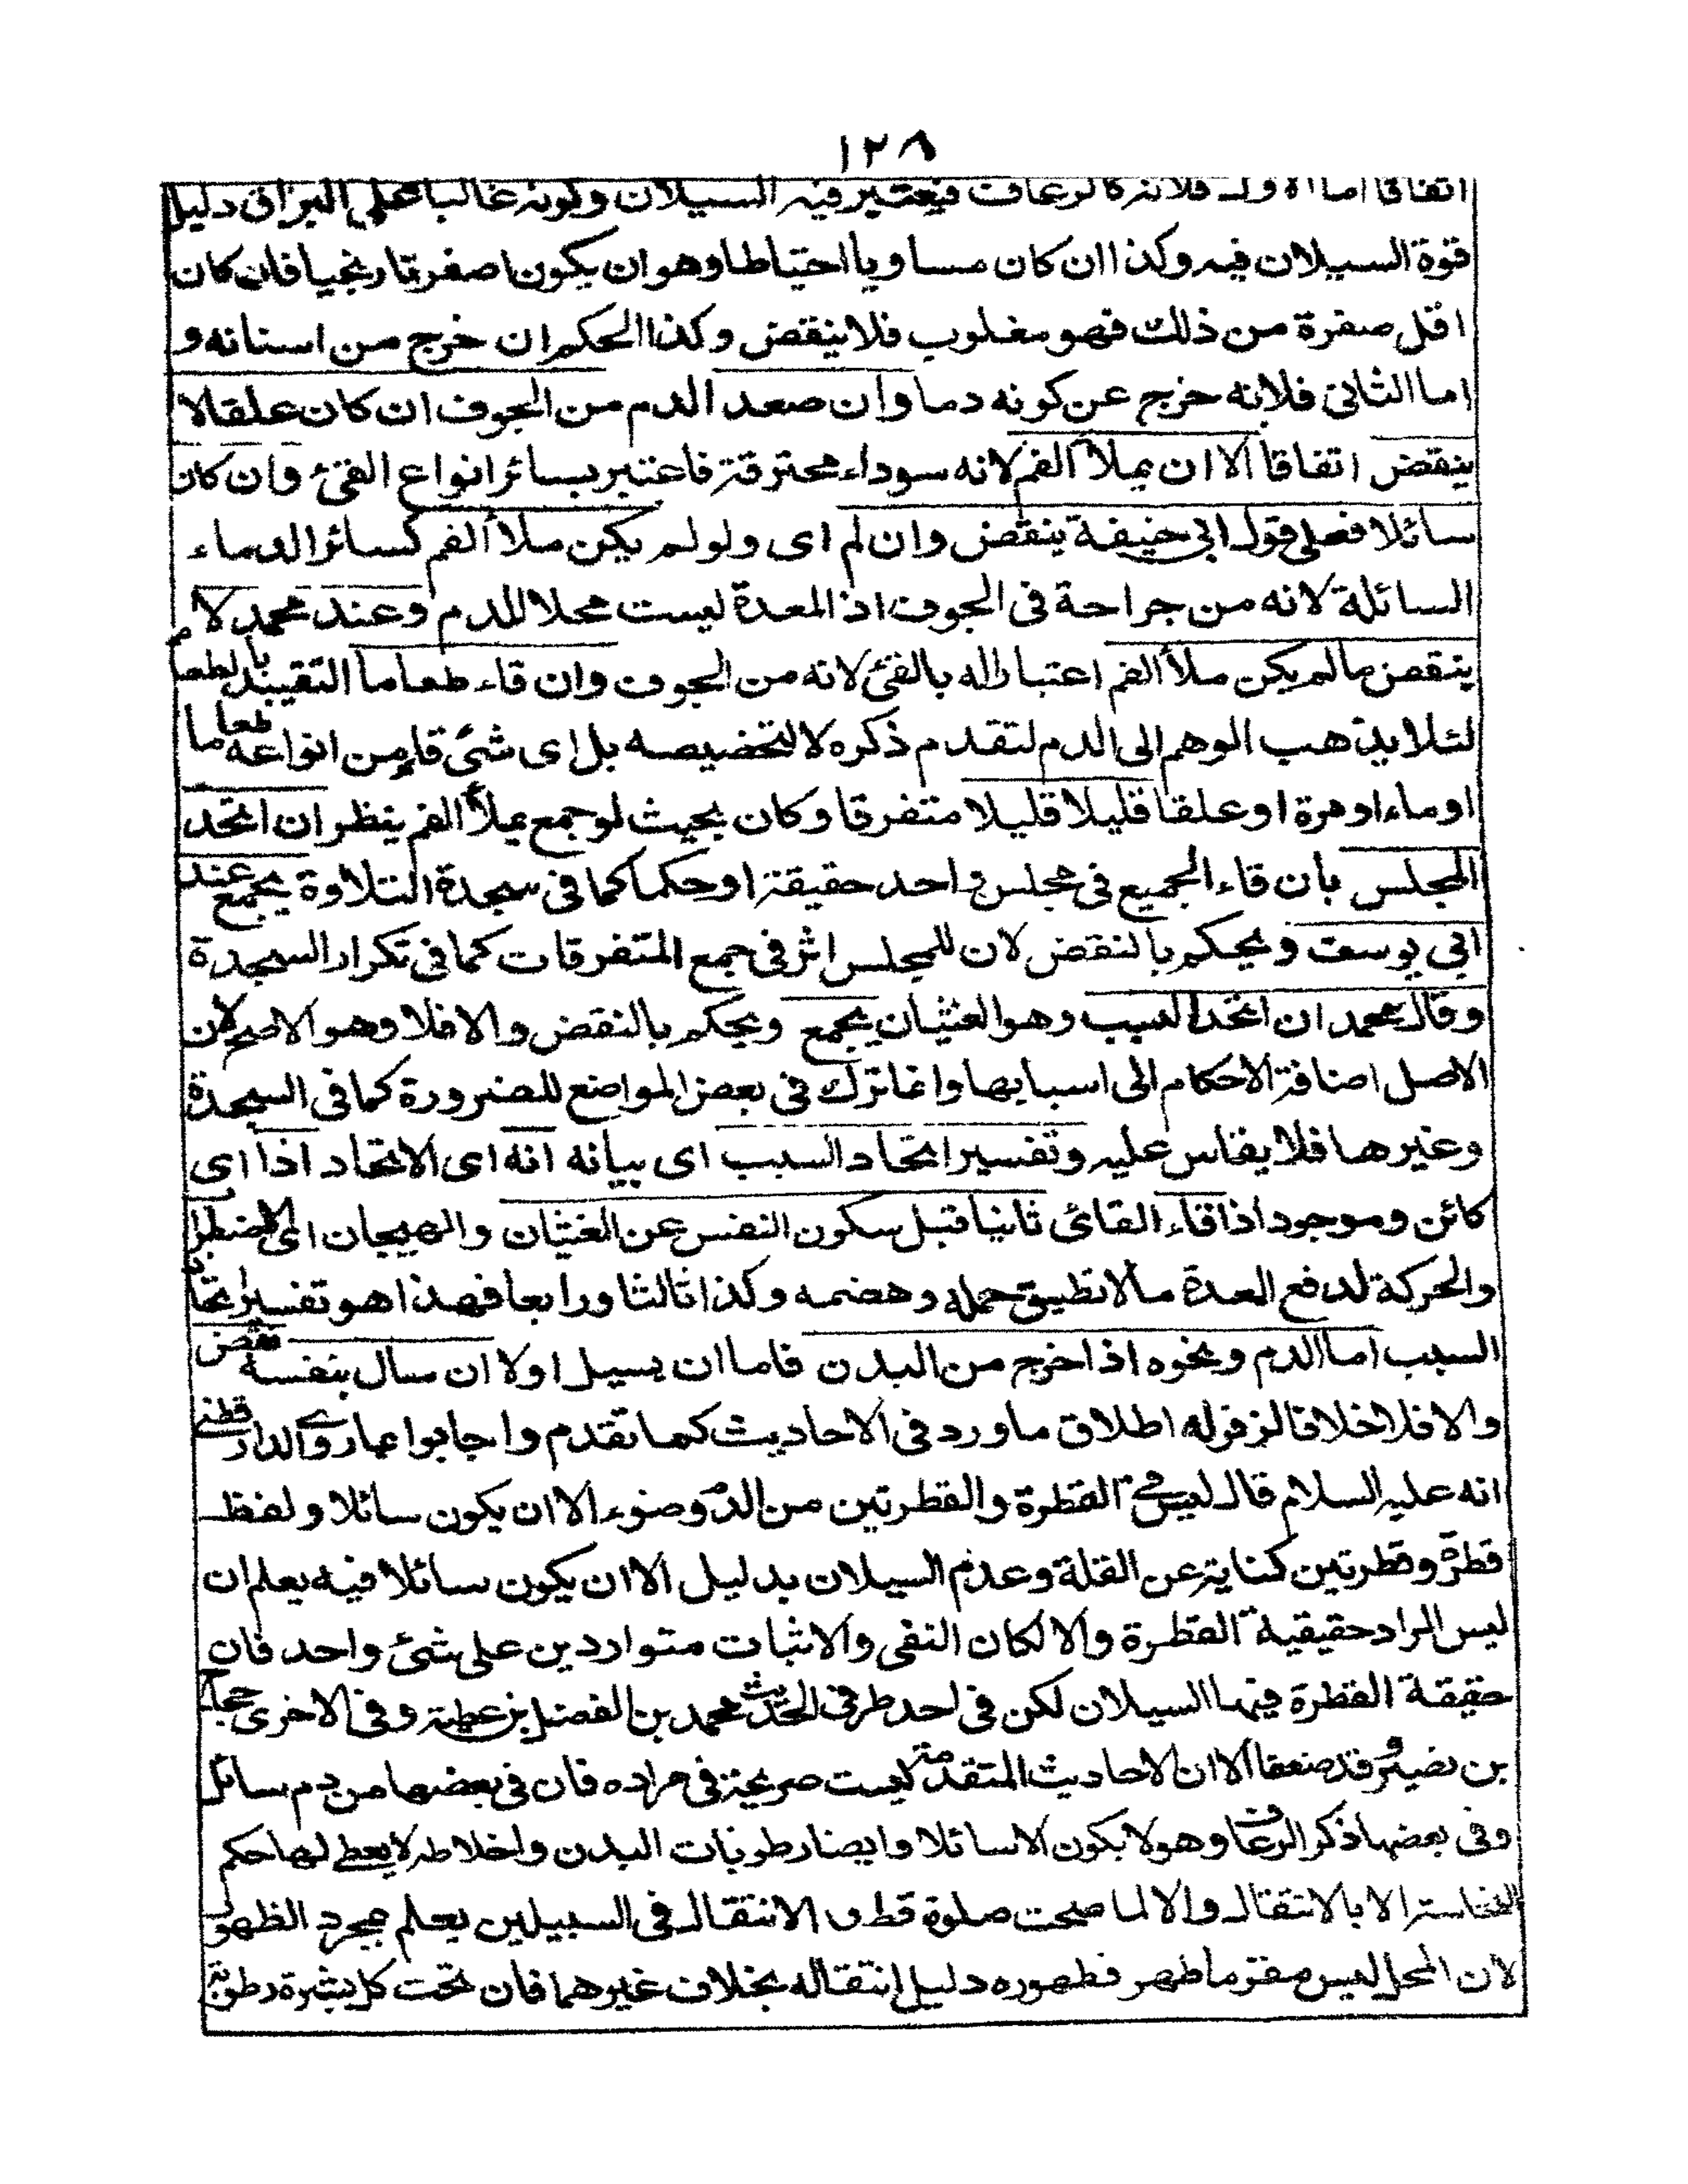 ١٢٨
اتفاقا اما الاول فلانه كالرعاف فيعتبر فيه السيلان وكونه غالبا على البزاق دليل
قوة السيلان فيه وكذا ان كان مساويا احتياطا وهو ان يكون اصفر نارنجيا فان كان
اقل صفرة من ذلك فهو مغلوب فلا ينقض وكذا الحكم ان خرج من اسنانه و
اما الثانى فلانه خرج عن كونه دما وان صعد الدم من الجوف ان كان علقا لا
ينقض اتفاقا الا ان يملأ الفم لانه سوداء محترقة فاعتبر بسائر انواع القئ وان كان
سائلا فعلى قول ابى حنيفة ينقض وان لم اى ولو لم يكن ملأ الفم كسائر الدماء
السائلة لانه من جراحة فى الجوف اذ المعدة ليست محلا للدم وعند محمد لا
ينقض ما لم يكن ملأ الفم اعتبارا له بالقئ لانه من الجوف وان قاء طعاما التقييد بالطعام
لئلا يذهب الوهم الى الدم لتقدم ذكره لا لتخصيصه بل اى شئ قاء من انواعه طعاما
او ماء او مرة او علقا قليلا قليلا متفرقا وكان بحيث لو جمع يملأ الفم ينظر ان اتحد
المجلس بان قاء الجميع فى مجلس واحد حقيقة او حكما كما فى سجدة التلاوة يجمع عند
ابى يوسف ويحكم بالنقض لان للمجلس اثر فى جمع المتفرقات كما فى تكرار السجدة
وقال محمد ان اتحد السبب وهو الغثيان يجمع ويحكم بالنقض والا فلا وهو الاصح لان
الاصل اضافة الاحكام الى اسبابها وانما ترك فى بعض المواضع للضرورة كما فى السجدة
وغيرها فلا يقاس عليه وتفسير اتحاد السبب اى بيانه انه اى الاتحاد اذا اى
كائن وموجود اذا قاء القائى ثانيا قبل سكون النفس عن الغثيان والهيجان اى الاضطراب
والحركة لدفع المعدة ما لا تطيق حمله وهضمه وكذا ثالثا ورابعا فهذا هو تفسير اتحاد
السبب اما الدم ونحوه اذا خرج من البدن فاما ان يسيل او لا ان سال بنفسه نقض
والا فلا خلافا لزفر له اطلاق ما ورد فى الاحاديث كما تقدم واجابوا بما روى الدارقطنى
انه عليه السلام قال ليس فى القطرة والقطرتين من الدم وضوء الا ان يكون سائلا ولفظ
قطرة وقطرتين كناية عن القلة وعدم السيلان بدليل الا ان يكون سائلا فيه يعلم ان
ليس المراد حقيقية القطرة والا لكان النفى والاثبات متواردين على شئ واحد فان
حقيقة القطرة فيها السيلان لكن فى احد طرفى الحديث محمد بن الفضل بن عطية وفى الاخرى حجاج
بن نصير وقد ضعفا الا ان الاحاديث المتقدمة ليست صريحة فى مراده فان فى بعضها من دم سائل
وفى بعضها ذكر الرعاف وهو لا يكون الا سائلا وايضا رطوبات البدن واخلاطه لا يعطى لها حكم
النجاسة الا بالانتقال والا لما صحت صلوة قط و الانتقال فى السبيلين يعلم بمجرد الظهور
لان المحل ليس مقر ما ظهر فظهوره دليل انتقاله بخلاف غيرهما فان تحت كل بشرة رطوبة